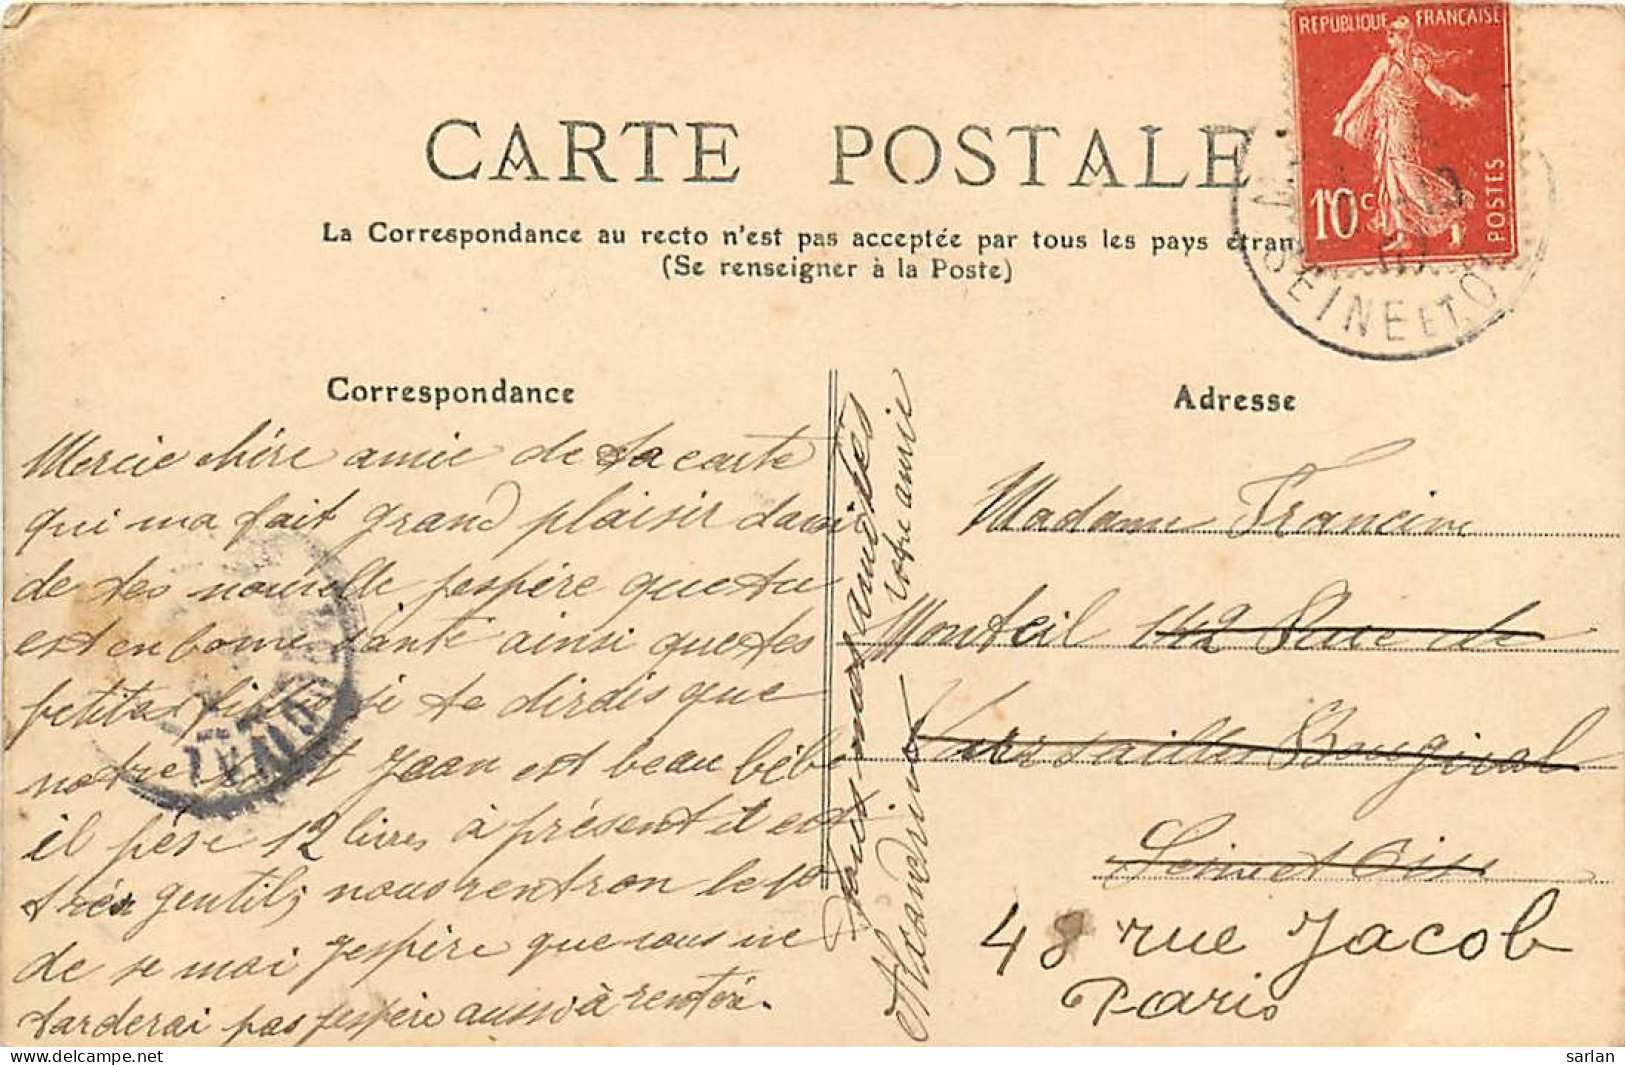 REPUBLIQUE FRANÇAISE
10 c
POSTES
SEINE ET O
CARTE POSTALE
La Correspondance au recto n'est pas acceptée par tous les pays étran
(Se renseigner à la Poste)
Correspondance
Mercie chère amie de ta carte
qui ma fait grand plaisir davoir
de tes nouvelle jespère que tu
est en bonne santé ainsi que tes
petites si te dirais que
notre petit Jean est beau bébé
il pèse 12 livres à présent il est
très gentil; nous rentron le 10
de se moi jespère que vous ne
tarderai pas jespère aussi à rentré.
votre amie
Alexandrine
Adresse
Madame Francine
Monteil 142 Rue de
Versailles Bougival
Seine et Oise
48 rue Jacob
Paris
Sarlan